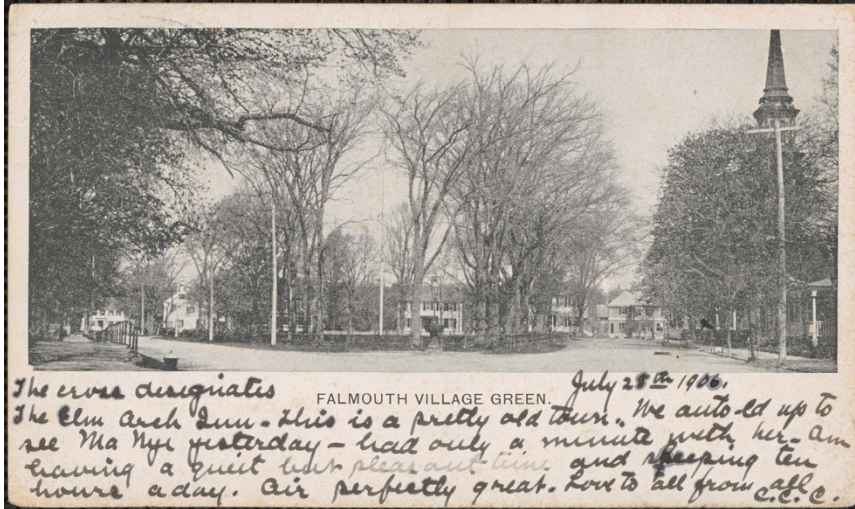 The cross designates
FALMOUTH VILLAGE GREEN.
July 28th 1906.
The Elm Arch Inn - This is a pretty old town. We auto-ed up to
see Ma Nye yesterday - had only a minute with her - Am
having a quiet but pleasant time and sleeping ten
hours a day. Air perfectly great. Love to all from all
C.C.C.